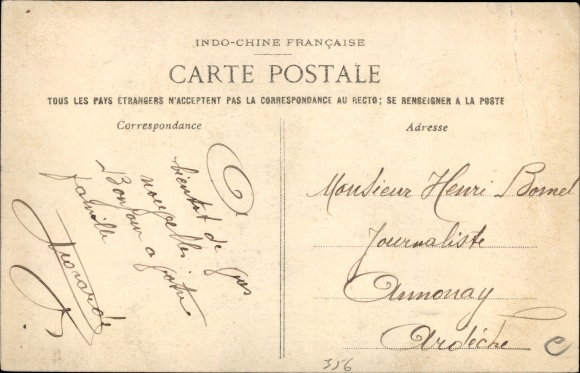 INDO-CHINE FRANÇAISE
CARTE POSTALE
TOUS LES PAYS ÉTRANGERS N'ACCEPTENT PAS LA CORRESPONDANCE AU RECTO; SE RENSEIGNER A LA POSTE
Correspondance
A
bientôt de
nouvelles
Bonjour a votre
famille
Adresse
Monsieur Henri Bomel
Journaliste
Annonay
Ardèche
356
C